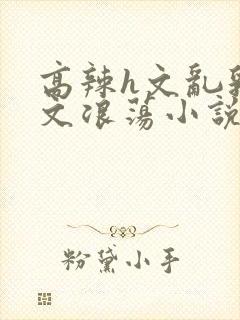 高辣h文亂
文浪蕩小說
粉黛小手